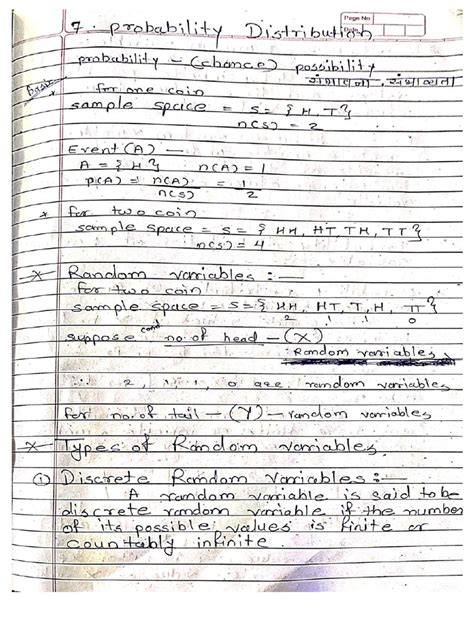 Page No.
Date
7. Probability Distribution
probability - (chance) possibility
संभावना . संभाव्यता
basic
for one coin
sample space = S = { H, T }
n(S) = 2
Event (A) —
A = { H } n(A) = 1
p(A) = n(A) = 1
n(S) 2
* for two coin
sample space = S = { HH, HT, TH, TT }
n(S) = 4
* Random variables : —
for two coin
sample space = S = { HH, HT, T, H, TT }
2 1 1 0
suppose cond no. of head - (X)
: Random variables
2, 1, 1, 0 are random variables
for no. of tail - (Y) - random variables
* Types of Random variables.
① Discrete Random Variables : —
A random variable is said to be
discrete random variable if the number
of its possible values is finite or
countably infinite.